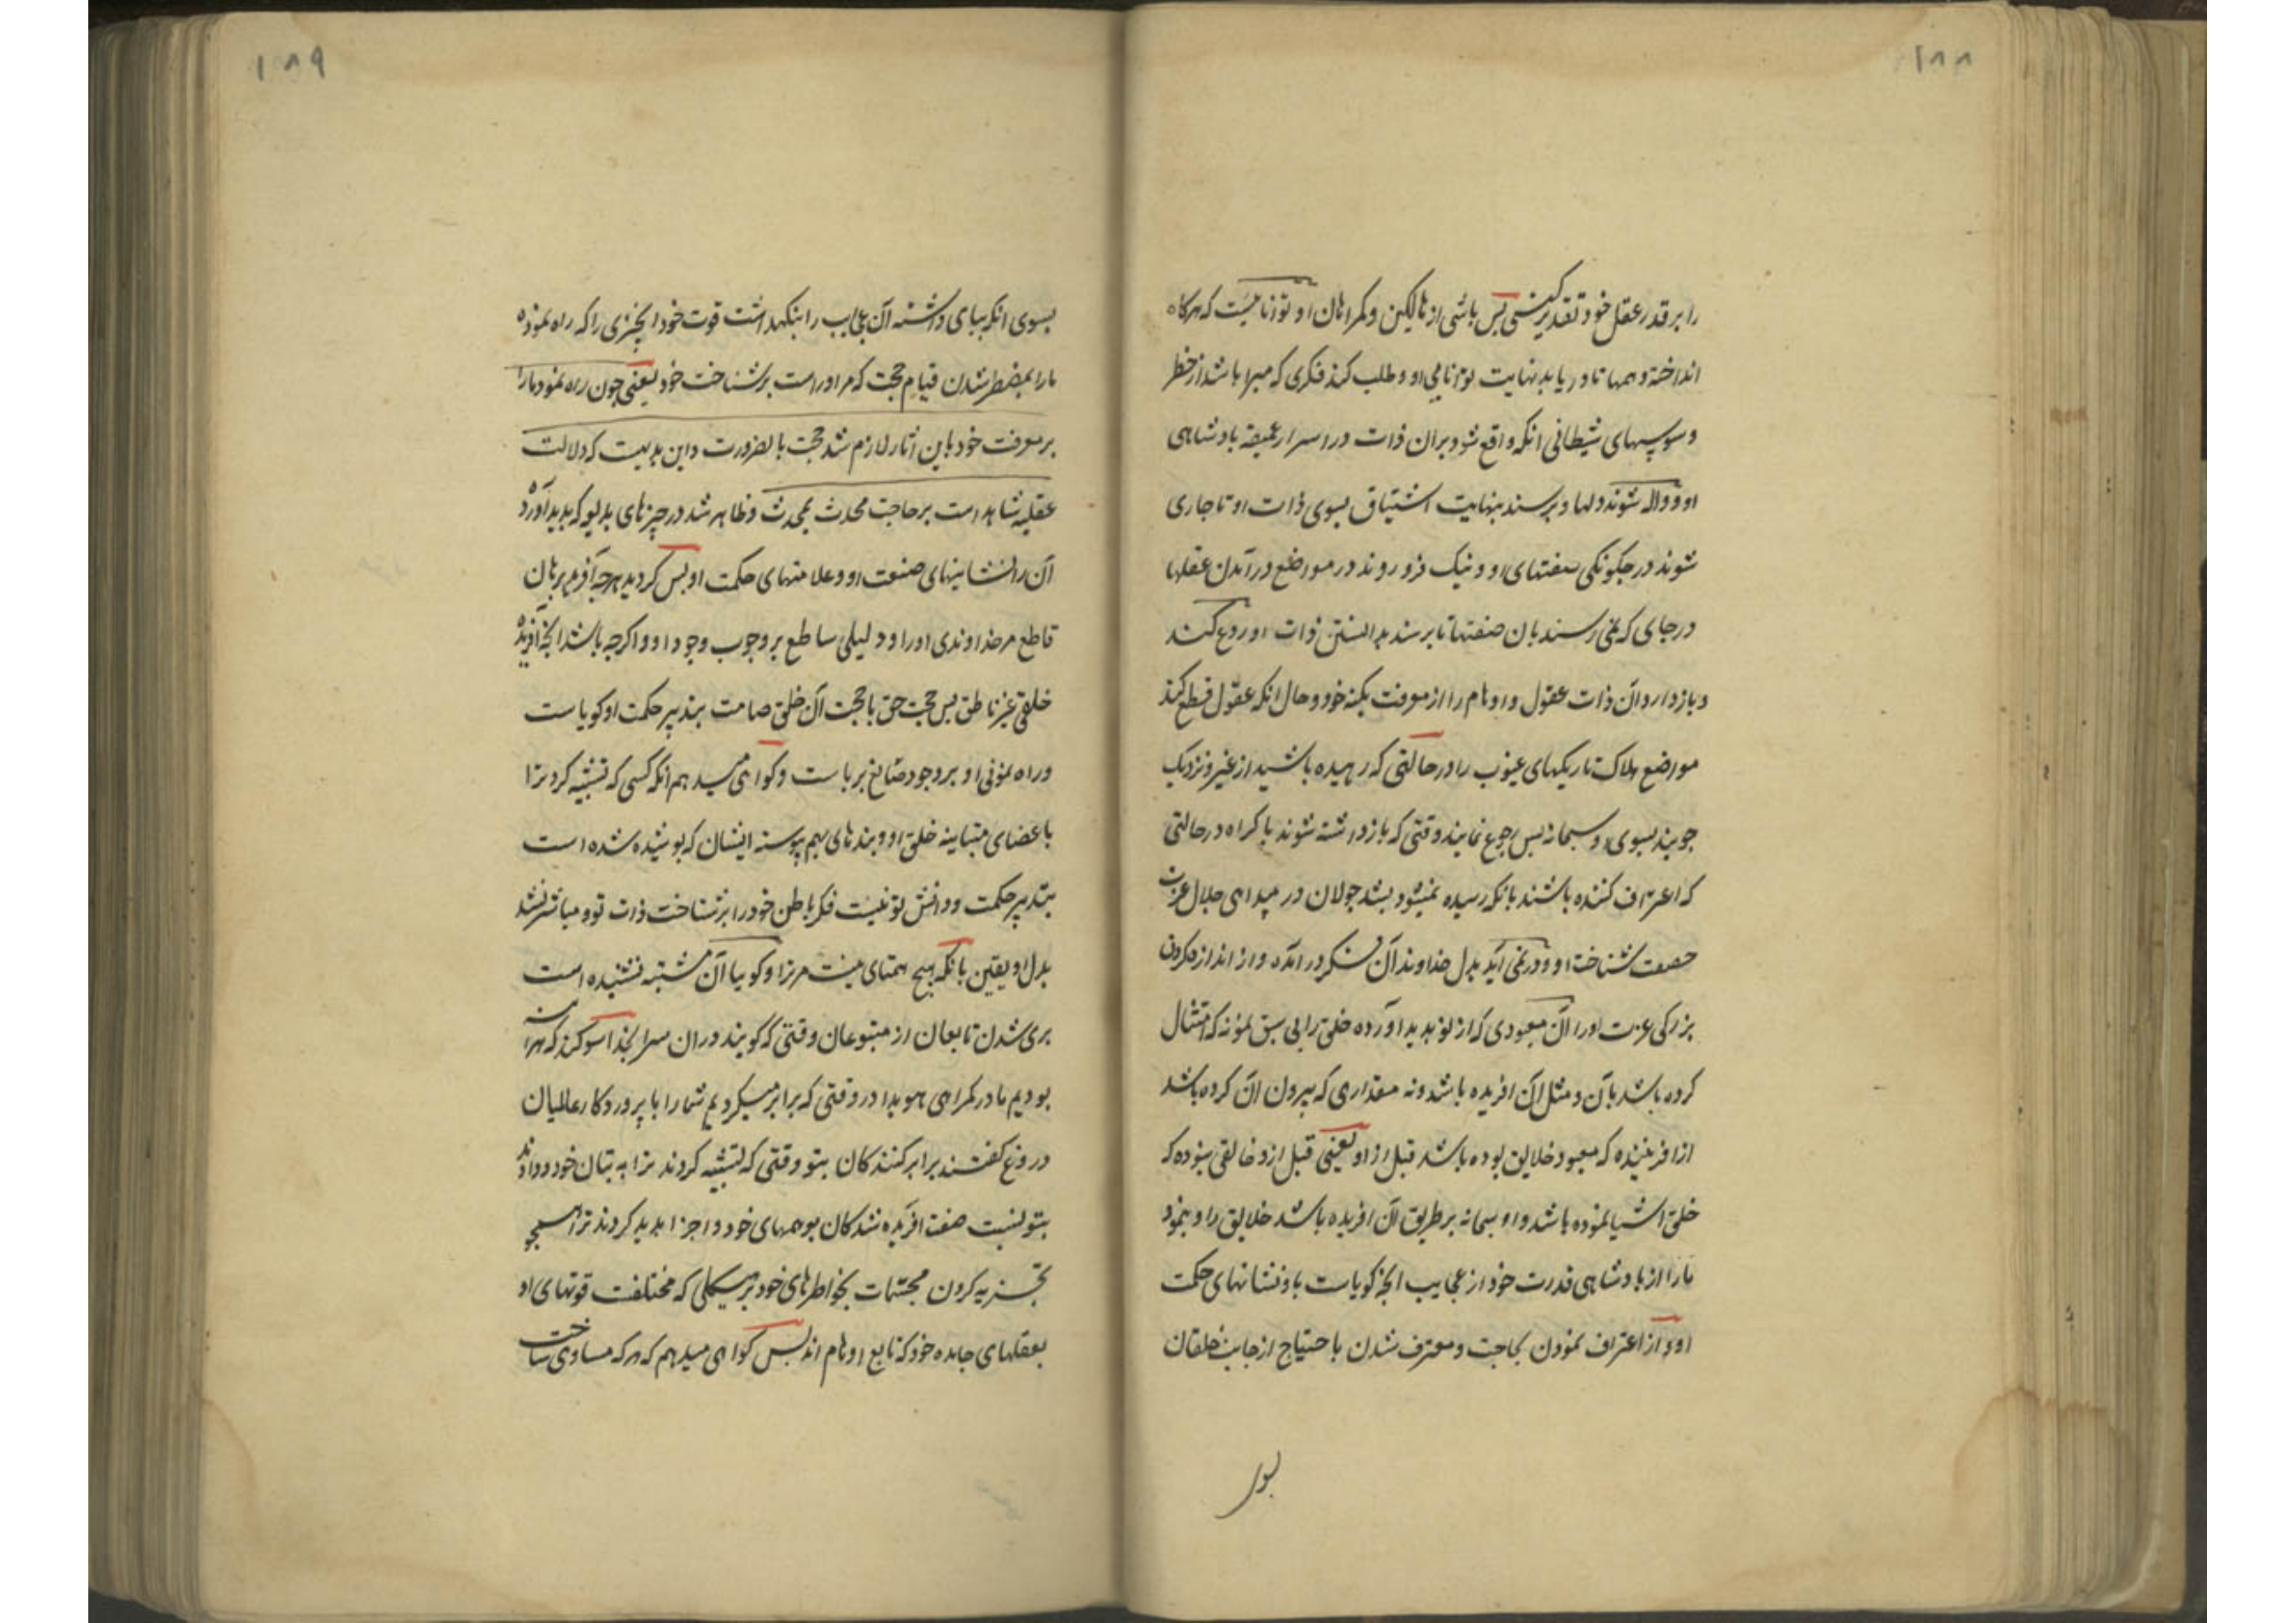 ۱۸۸
را بر قدر عقل خود تقدیر کنی پس باشی از هالکین و کمراهان او توانائیست که هرکاه
انداخته وهمها تا دریابد نهایت توانایی او و طلب کند فکری که مبرا باشد از خطر
وسوسهای شیطانی آنکه واقع شود بران ذات در اسرار عمیقه بادشاهی
او و واله شوند دلها و برسند بنهایت اشتیاق بسوی ذات او تا جاری
شوند در چکونکی صفتهای او و نیک فرو روند در مواضع درآمدن عقلها
در جای که نمی رسند بان صفتها تا برسند بدانستن ذات او ردع کند
و باز دارد آن ذات عقول و اوهام را از معرفت بکنه خود و حال انکه عقول قطع کند
مواضع هلاک تاریکیهای غیوب را در حالتی که رهیده باشند از غیر و نزدیک
جویند بسوی او سبحانه پس رجوع نمایند وقتی که باز داشته شوند باکراه در حالتی
که اعتراف کننده باشند بانکه رسیده نمیشود بشد جولان در میدان جلال عزت
شناخت او و در نمی آید بدل خداوند آن در آمده و از انداز کردن
بزرکی عزت او را آن معبودی که از نو بدید آورده خلق را بی سبق نمونه که امتثال
کرده باشد بآن و مثل آن افریده باشد و نه مقداری که بیرون آن کرده باشد
از افریننده که معبود خلایق بوده باشد قبل از او یعنی قبل ازو خالقی نبوده که
خلق اشیا نموده باشد و او سبحانه بر طریق آن افریده باشد خلایق را و بنمود
ما را از بادشاهی قدرت خود از عجایب آنچه کویاست باو نشانهای حکمت
او و از اعتراف نمودن بحاجت و معترف شدن باحتیاج از جانب خلقان
بسوی
۱۸۹
بسوی انکه بپای داشته آن عجایب را بنکهداشت قوت خود انچیزی را که راه نموده
ما را بمضطر شدن قیام حجت که مر اوراست بر شناخت خود یعنی چون راه نمود ما را
بر معرفت خود باین اثار لازم شد حجت بالضرورت و این بدیهیست که دلالت
عقلیه شاهد است بر حاجت محدث بمحدث و ظاهر شد در چیزهای بدیع که بدید آورد
آن را نشانیهای صنعت او و علامتهای حکمت او پس کردید هر چه آفرید برهان
قاطع مر خداوندی او را و دلیلی ساطع بر وجوب وجود او و اکر چه باشد انچه آفریده
خلقی غیر ناطق پس حجت حق با حجت آن خلق صامت بتدبیر حکمت او کویاست
و راه نمونی او بر وجود صانع برپاست و کواهی میدهم انکه کسی که تشبیه کرد ترا
باعضای متباینه خلق او و بندهای بهم پیوسته ایشان که پوشیده شده است
بتدبیر حکمت و دانش تو نبست فکر باطن خود را بر شناخت ذات تو و مباشر نشد
بدل او یقین بانکه هیچ همتای نیست مر ترا و کوییا آن مشتبه نشنیده است
بری شدن تابعان از متبوعان وقتی که کویند دران سرا بخدا سوکند که هراینه
بودیم ما در کمراهی هویدا در وقتی که برابر میکردیم شما را با پروردکار عالمیان
دروغ کفتند برابر کنندکان بتو وقتی که تشبیه کردند ترا به بتان خود و دادند
بتو نسبت صفت افریده شدکان بوهمهای خود و اجزا بدید کردند ترا همچو
تجزیه کردن مجسمات بخواطرهای خود بر هیکلی که مختلفست قوتهای او
بعقلهای جامده خود که تابع اوهام اند پس کواهی میدهم که هر که مساوی ساخت